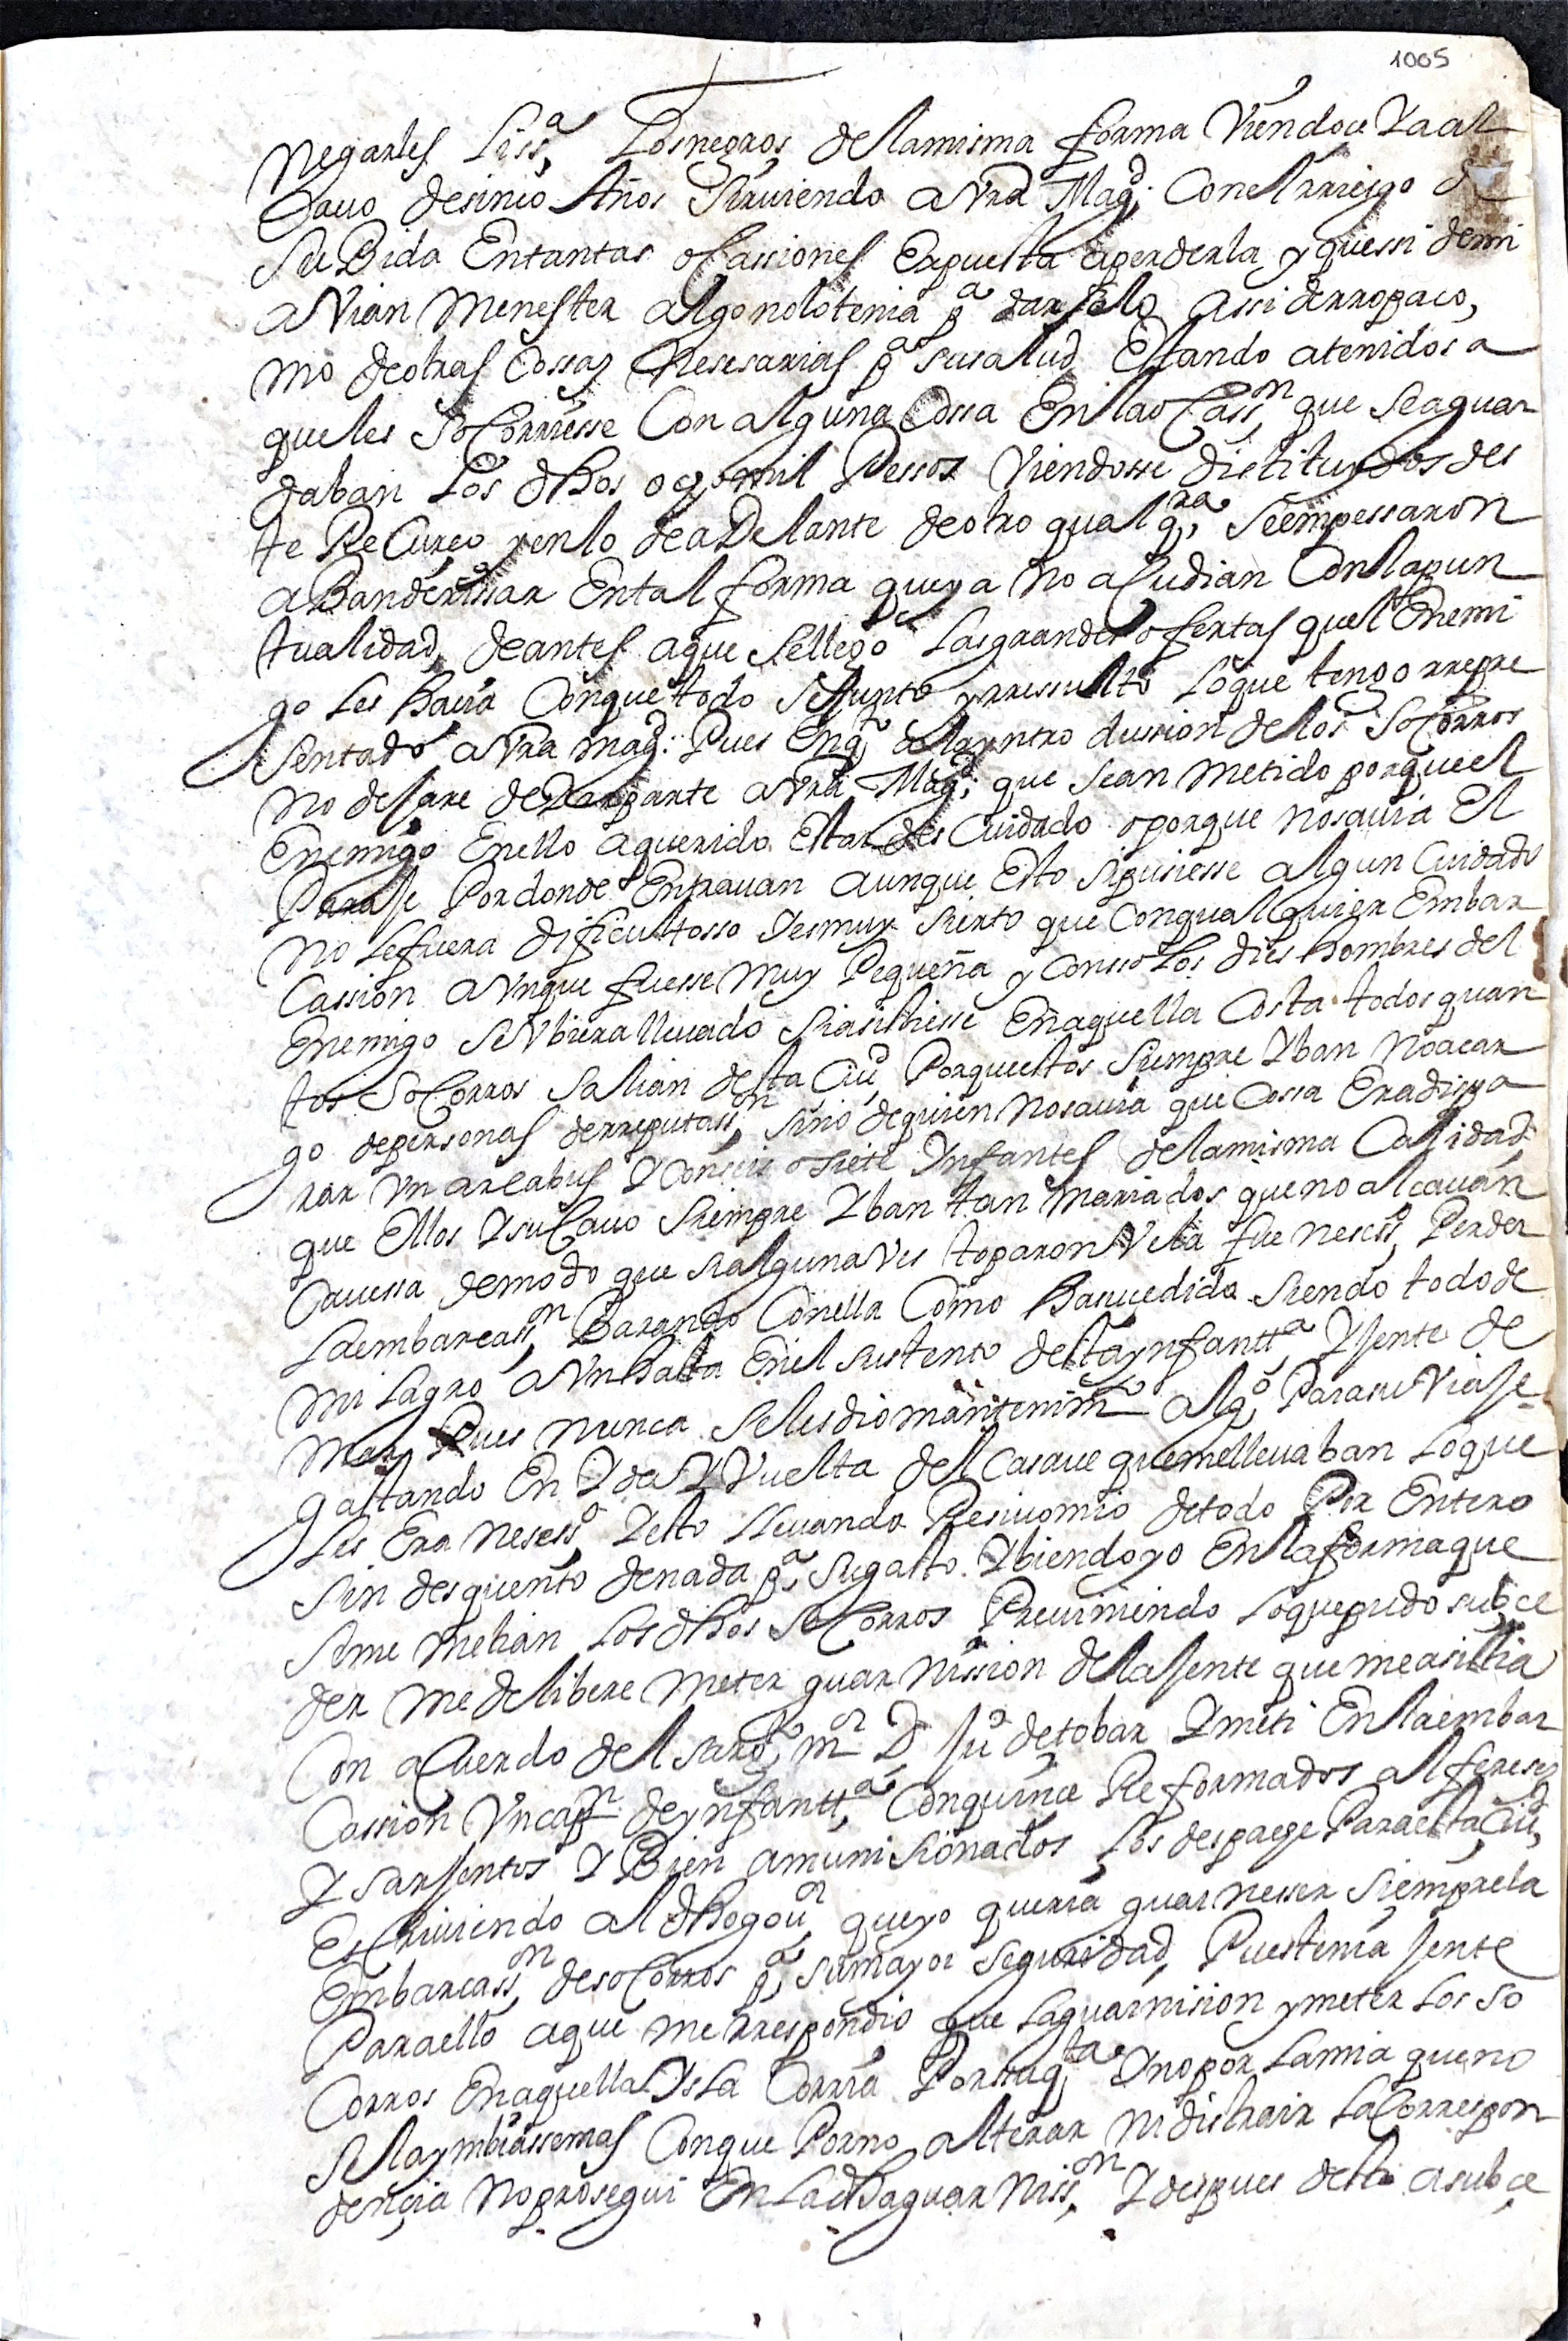 1005
Negarles Liss.ª Los negros de la misma forma Viendoce Ya al
Cauo desinco Años Siruiendo a Vra Mag.d Con el rriesgo de
Su Bida En tantas ocassiones Expuesta a perderla y que ssi de mi
avian Menester algo no lo tenia p.ª darselo assi de rropa co,
mo de otras Cossas Nesesarias p.ª su salud Estando atenidos a
que les SoCorriesse Con alguna Cossa En la oCass.on que se aguar
daban Los dhos ocho mil Pessos Viendosse distituydos des
te ReCurço y en lo de aDelante de otro qualq.ra Se empessaron
a Banderissar En tal forma que ya no aCudian Con la pun
tualidad, de antes a que se llego Las grandes ofertas que el Enemi
go Les Hacia Con que todo se Junto y rressulto Lo que tengo rrepre
Sentado a Vra Mag.d Pues En q.to a la yntro dussion de los SoCorros
no deJare de Dar parte a Vra Mag.d que se an metido porque el
Enemigo En ello a querido Estar desCuidado o porque no sauia El
ParaJe Por donde Entrauan aunque Esto si pusiesse algun Cuidado
No Le fuera dificultosso Y es muy sierto que Con qualquier Embar
Cassion aunque fuesse Muy Pequeña y Con solos dies hombres del
Enemigo se Vbiera lleuado si asistiesse En aquella Costa todos quan
tos SoCorros Salian desta Ciu.d Porque estos Siempre Yban No a car
go de personas de rreputass.on Sino de quien no sauia que Cossa Era dispa
rar Vn arcabus Y Con seis o siete Ynfantes de la misma Calidad
que Ellos Y su Cauo Siempre Yban tan Mariados que no alcauan
Cauessa de modo que si alguna Ves toparon Vela fue neses.º Perder
La embarcass.on Barando Con ella Como Ha susedido Siendo todo de
Milagro aun hasta En el sustento desta ynfantt.ª Y Jente de
Mar Pues nunca Se les dio mantenim.to alg.º Para su ViaJe
gastando En Yda Y Vuelta del Casaue que me lleuaban Lo que
Les Era neses.º Y esto lleuando Resiuo mio de todo Por Entero
Sin desquento de nada p.ª su gasto. Y biendo yo En la forma que
Se me metian Los dhos SoCorros Preuiniendo Lo que pudo subce
der me delibere Meter guarnission de la Jente que me asistia
Con aCuerdo del sarg.to m.or D. Ju.º de tobar Y meti En la embar
Cassion Vn cap.n de ynfantt.ª Con quinse Reformados alferes
Y sarJentos Y Bien amunisionados Los despache Para esta Ciu.d
EsCriuiendo al dho gou.or que yo queria guarnesser Siempre la
Embarcass.on de soCorros p.ª su mayor Seguridad, Pues tenia Jente
Para ello a que me rrespondio que La guarnision y meter los So
Corros En aquella Ysla Corria Por su q.ta Y no por La mia que no
Se la ymbiasse mas Con que Por no alterar ni distrair La Correspon
dençia No prosegui En La dha guarniss.on Y despues desto a subce